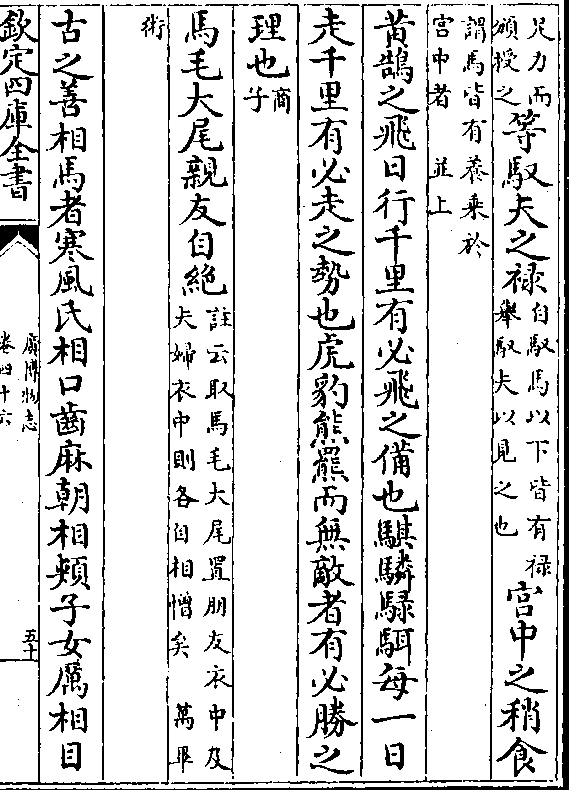 足力而頒授之等馭夫之禄自馭馬以下皆有禄舉馭夫以見之也宫中之稍食
謂馬皆有養乗於宫中者 並上
黄鵠之飛日行千里有必飛之備也騏驎騄駬每一日
走千里有必走之勢也虎豹熊羆而無敵者有必勝之
理也商子
馬毛大尾親友自絶註云取馬毛大尾置朋友衣中及夫婦衣中則各自相憎矣 萬畢
術
古之善相馬者寒風氏相口齒麻朝相頰子女厲相目
欽定四庫全書
廣博物志
卷四十六
五十